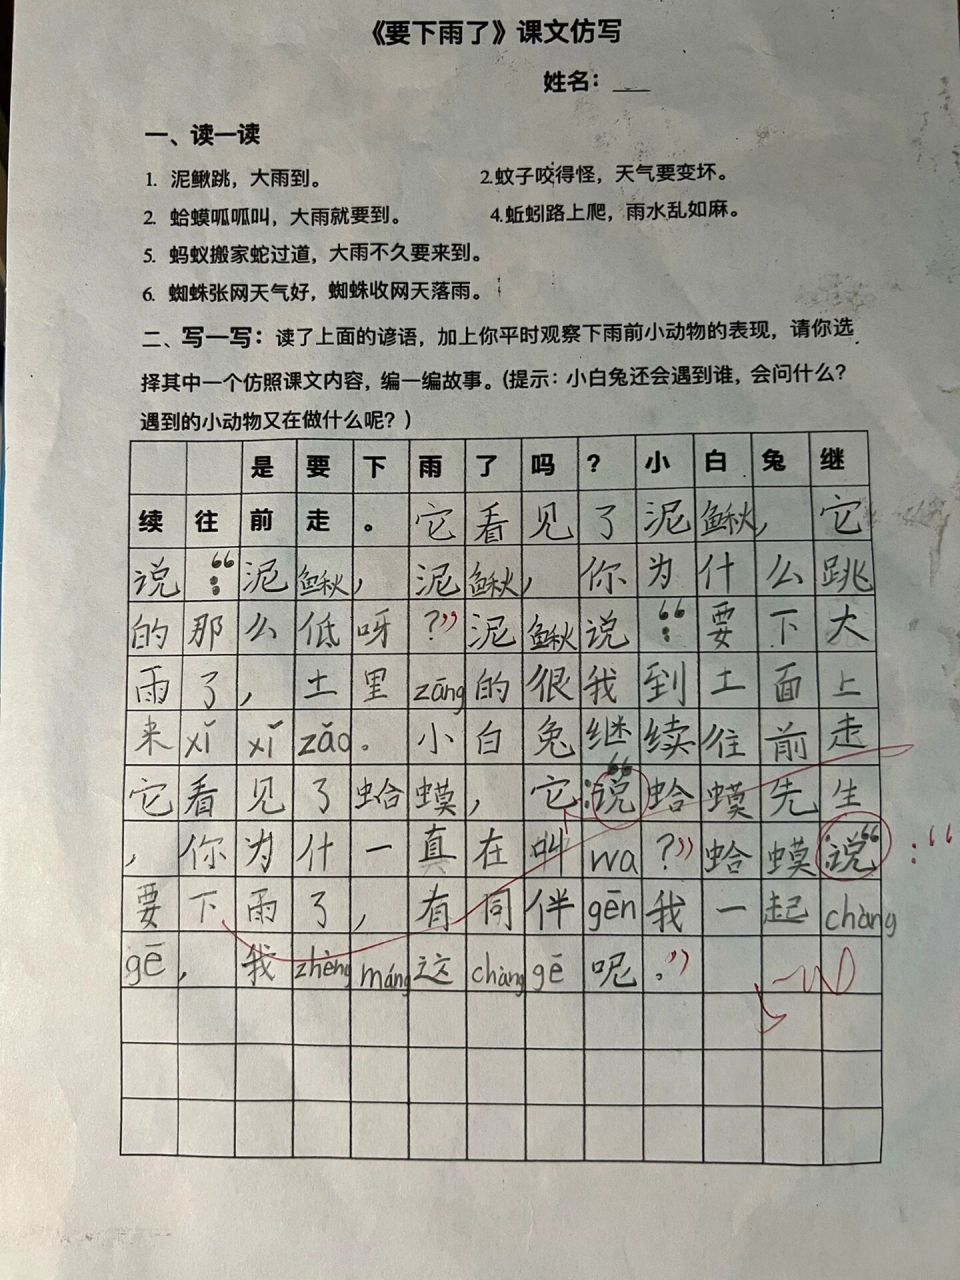 《要下雨了》课文仿写
姓名：
一、读一读
1. 泥鳅跳，大雨到。 2.蚊子咬得怪，天气要变坏。
2. 蛤蟆呱呱叫，大雨就要到。 4.蚯蚓路上爬，雨水乱如麻。
5. 蚂蚁搬家蛇过道，大雨不久要来到。
6. 蜘蛛张网天气好，蜘蛛收网天落雨。
二、写一写：读了上面的谚语，加上你平时观察下雨前小动物的表现，请你选
择其中一个仿照课文内容，编一编故事。(提示：小白兔还会遇到谁，会问什么？
遇到的小动物又在做什么呢？)
是要下雨了吗？小白兔继
续往前走。它看见了泥鳅，它
说：“泥鳅，泥鳅，你为什么跳
的那么低呀？”泥鳅说：“要下大
雨了，土里zāng的很我到土面上
来xǐ xǐ zǎo。小白兔继续往前走
它看见了蛤蟆，它说：“蛤蟆先生
，你为什一真在叫wa？”蛤蟆说：“ ：“
要下雨了，有同伴gēn我一起chàng
gē，我zhèng máng这chàng gē呢。”